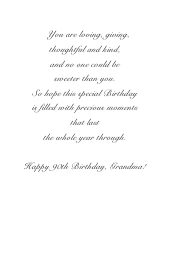 You are loving, giving,
thoughtful and kind,
and no one could be
sweeter than you.
So hope this special Birthday
is filled with precious moments
that last
the whole year through.
Happy 90th Birthday, Grandma!